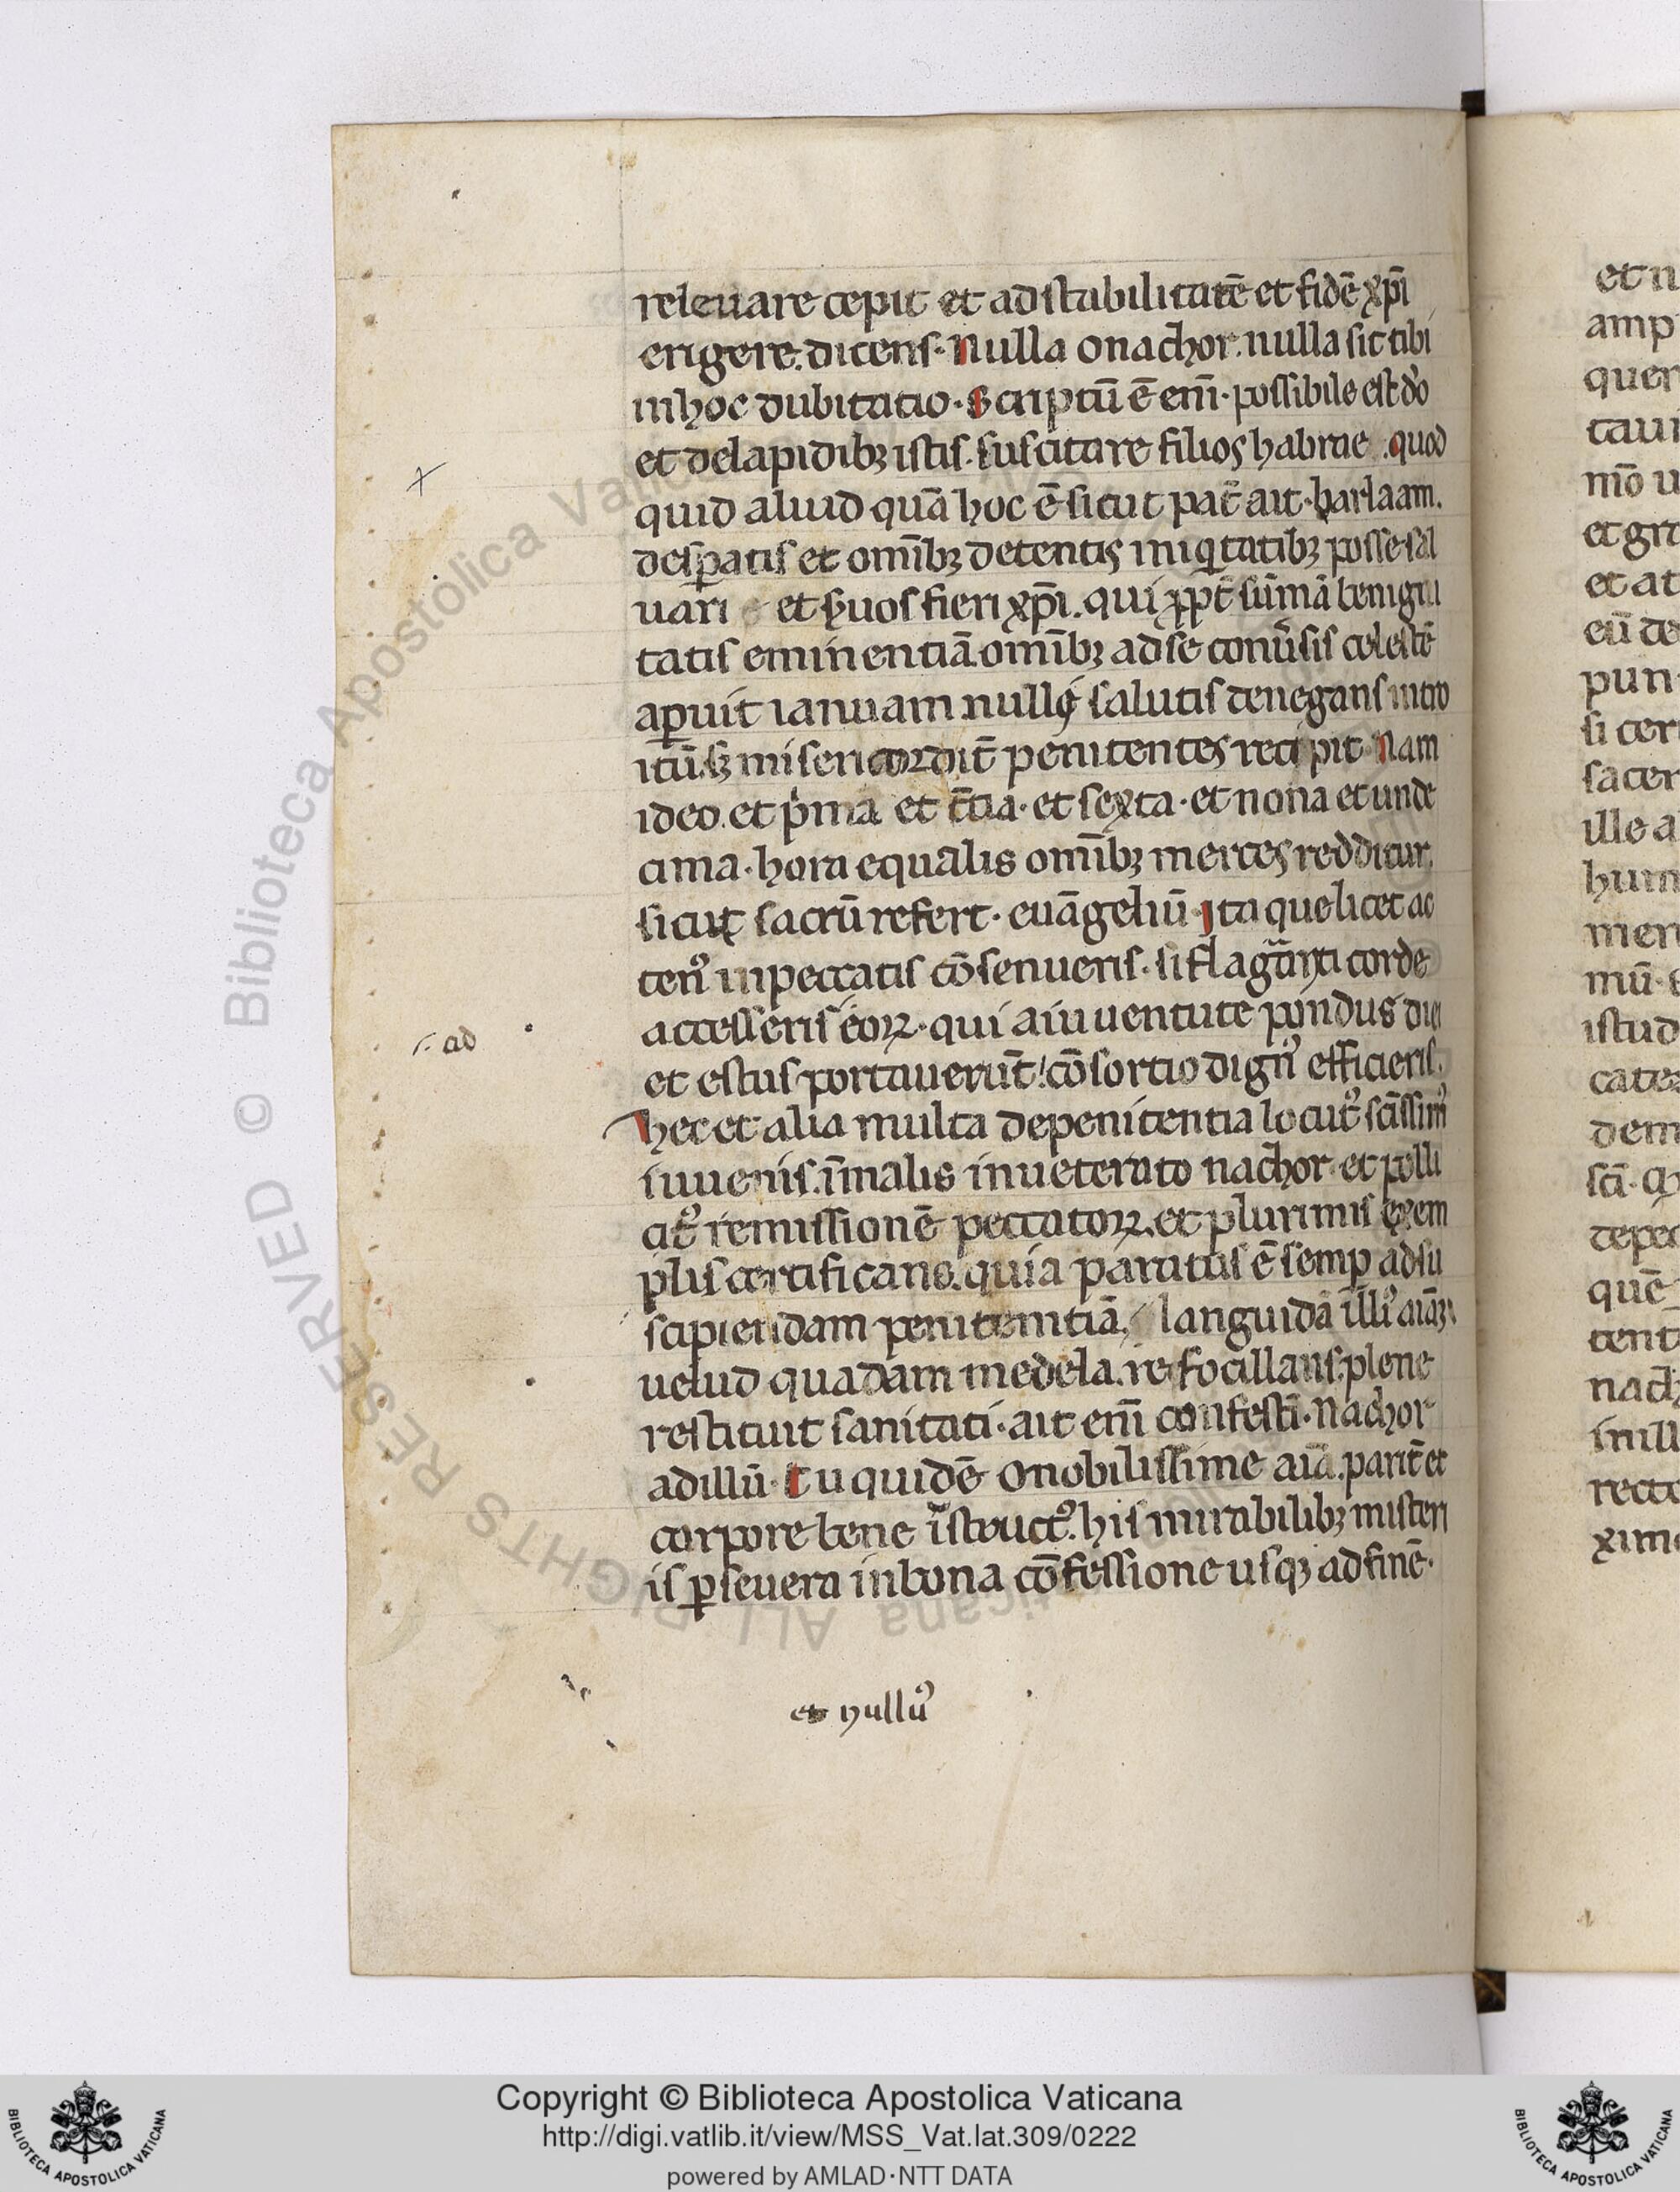 releuare cepit et ad stabilitatē et fidē xp̄i
erigere. dicens. Nulla o nachor. nulla sit tibi
in hoc dubitatio. Scriptū ē eni̅. possibile est do
et de lapidibꝫ istis. suscitare filios habrae. quod
quid aliud quā hoc ē sicut pat̄ ait. barlaam.
desꝑatis et om̄ibꝫ detentis iniqͥtatibꝫ posse sal
uari et s̾uos fieri xp̄i. qui ꝓpt̄ sūmā benigni
tatis eminentiā om̄ibꝫ ad se conu̾sis celestē
aꝑuit ianuam nullę salutis denegans intro
itū. sꝫ misericordit̄ penitentes recipit. Nam
ideo. et pͥma et t̄cia. et sexta. et nona et unde
cima. hora equalis om̄ibꝫ merces redditur,
sicut sacrū refert. euāgeliū. Ita que licet ac
tenꝰ in peccatis cōsenueris. si flagranti corde
accesseris eoꝝ. qui a iuuentute pondus diei
et estus portauerūt! cōsortio dignꝰ efficieris.
hec et alia multa de penitentia locutꝰ sc̄issimꝰ
iuuenis. ī malis inueterato nachor. et polli
citꝰ remissionē peccatoꝝ. et plurimis exem
plis certificans. quia paratus ē semꝑ ad su
scipiendam penitentiā, languidā illiꝰ aiāꝫ
uelud quadam medela. refocillans. plene
restituit sanitati. ait eni̅ confestī. Nachor
ad illū. Tu quidē o nobilissime aiā. parit̄ et
corpore bene īstructꝰ. his mirabilibꝫ misteri
is ꝑseuera in bona cōfessione usqꝫ ad finē.
ad
et nullꝰ
et n
amp
quer
taui
mō u
et gra
et at
eū de
pun
si cer
sacer
ille a
hum
men
mū.
istud
cate
dem
scī.
tepe
quē
tent
nach
in ill
recto
xime
© Biblioteca Apostolica Vaticana ALL RIGHTS RESERVED
Copyright © Biblioteca Apostolica Vaticana
http://digi.vatlib.it/view/MSS_Vat.lat.309/0222
powered by AMLAD·NTT DATA
BIBLIOTECA APOSTOLICA VATICANA
BIBLIOTECA APOSTOLICA VATICANA